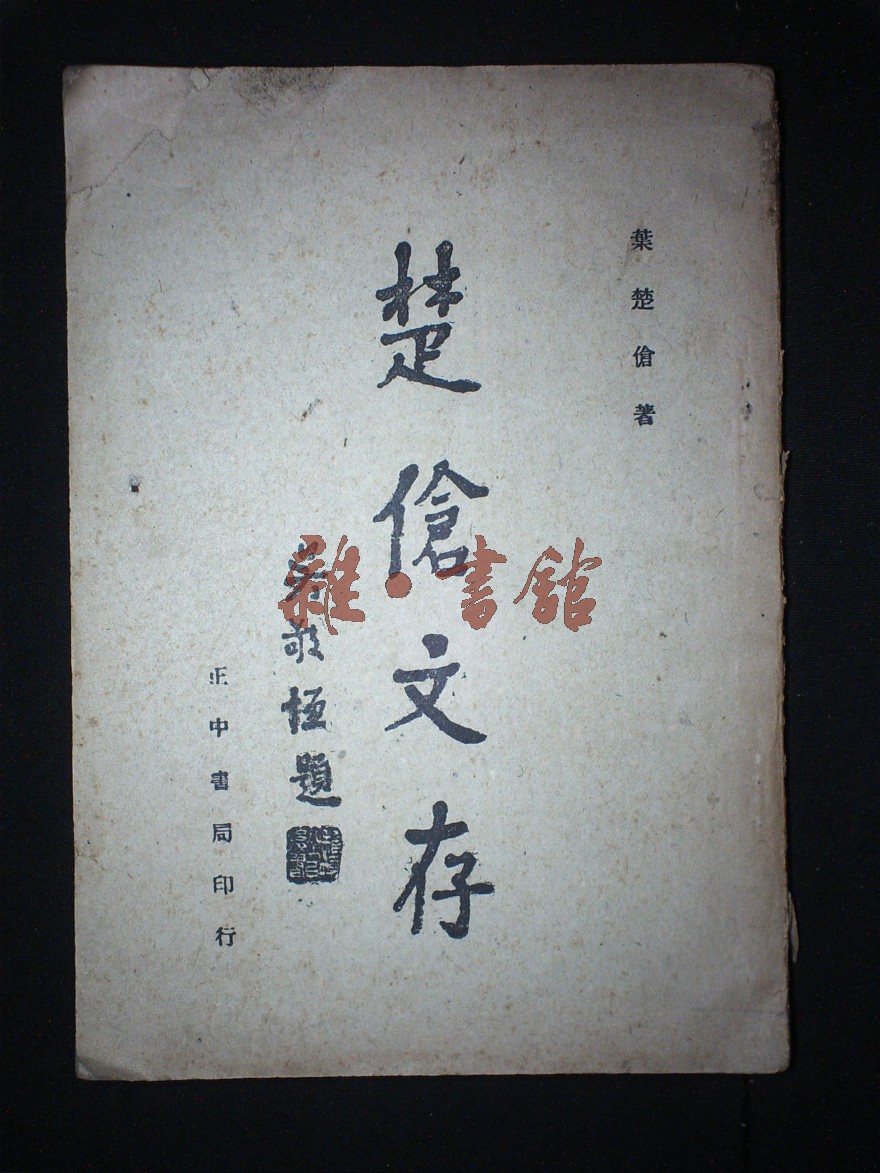 葉楚傖著
楚傖文存
吳敬恒題
正中書局印行
雜·書館